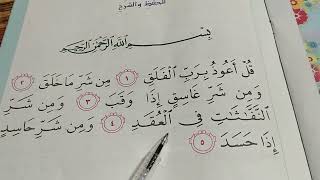 الحفظ والشرح
بِسْمِ اللَّهِ الرَّحْمَٰنِ الرَّحِيمِ
قُلْ أَعُوذُ بِرَبِّ ٱلْفَلَقِ ١ مِن شَرِّ مَا خَلَقَ ٢
وَمِن شَرِّ غَاسِقٍ إِذَا وَقَبَ ٣ وَمِن شَرِّ
ٱلنَّفَّٰثَٰتِ فِى ٱلْعُقَدِ ٤ وَمِن شَرِّ حَاسِدٍ
إِذَا حَسَدَ ٥